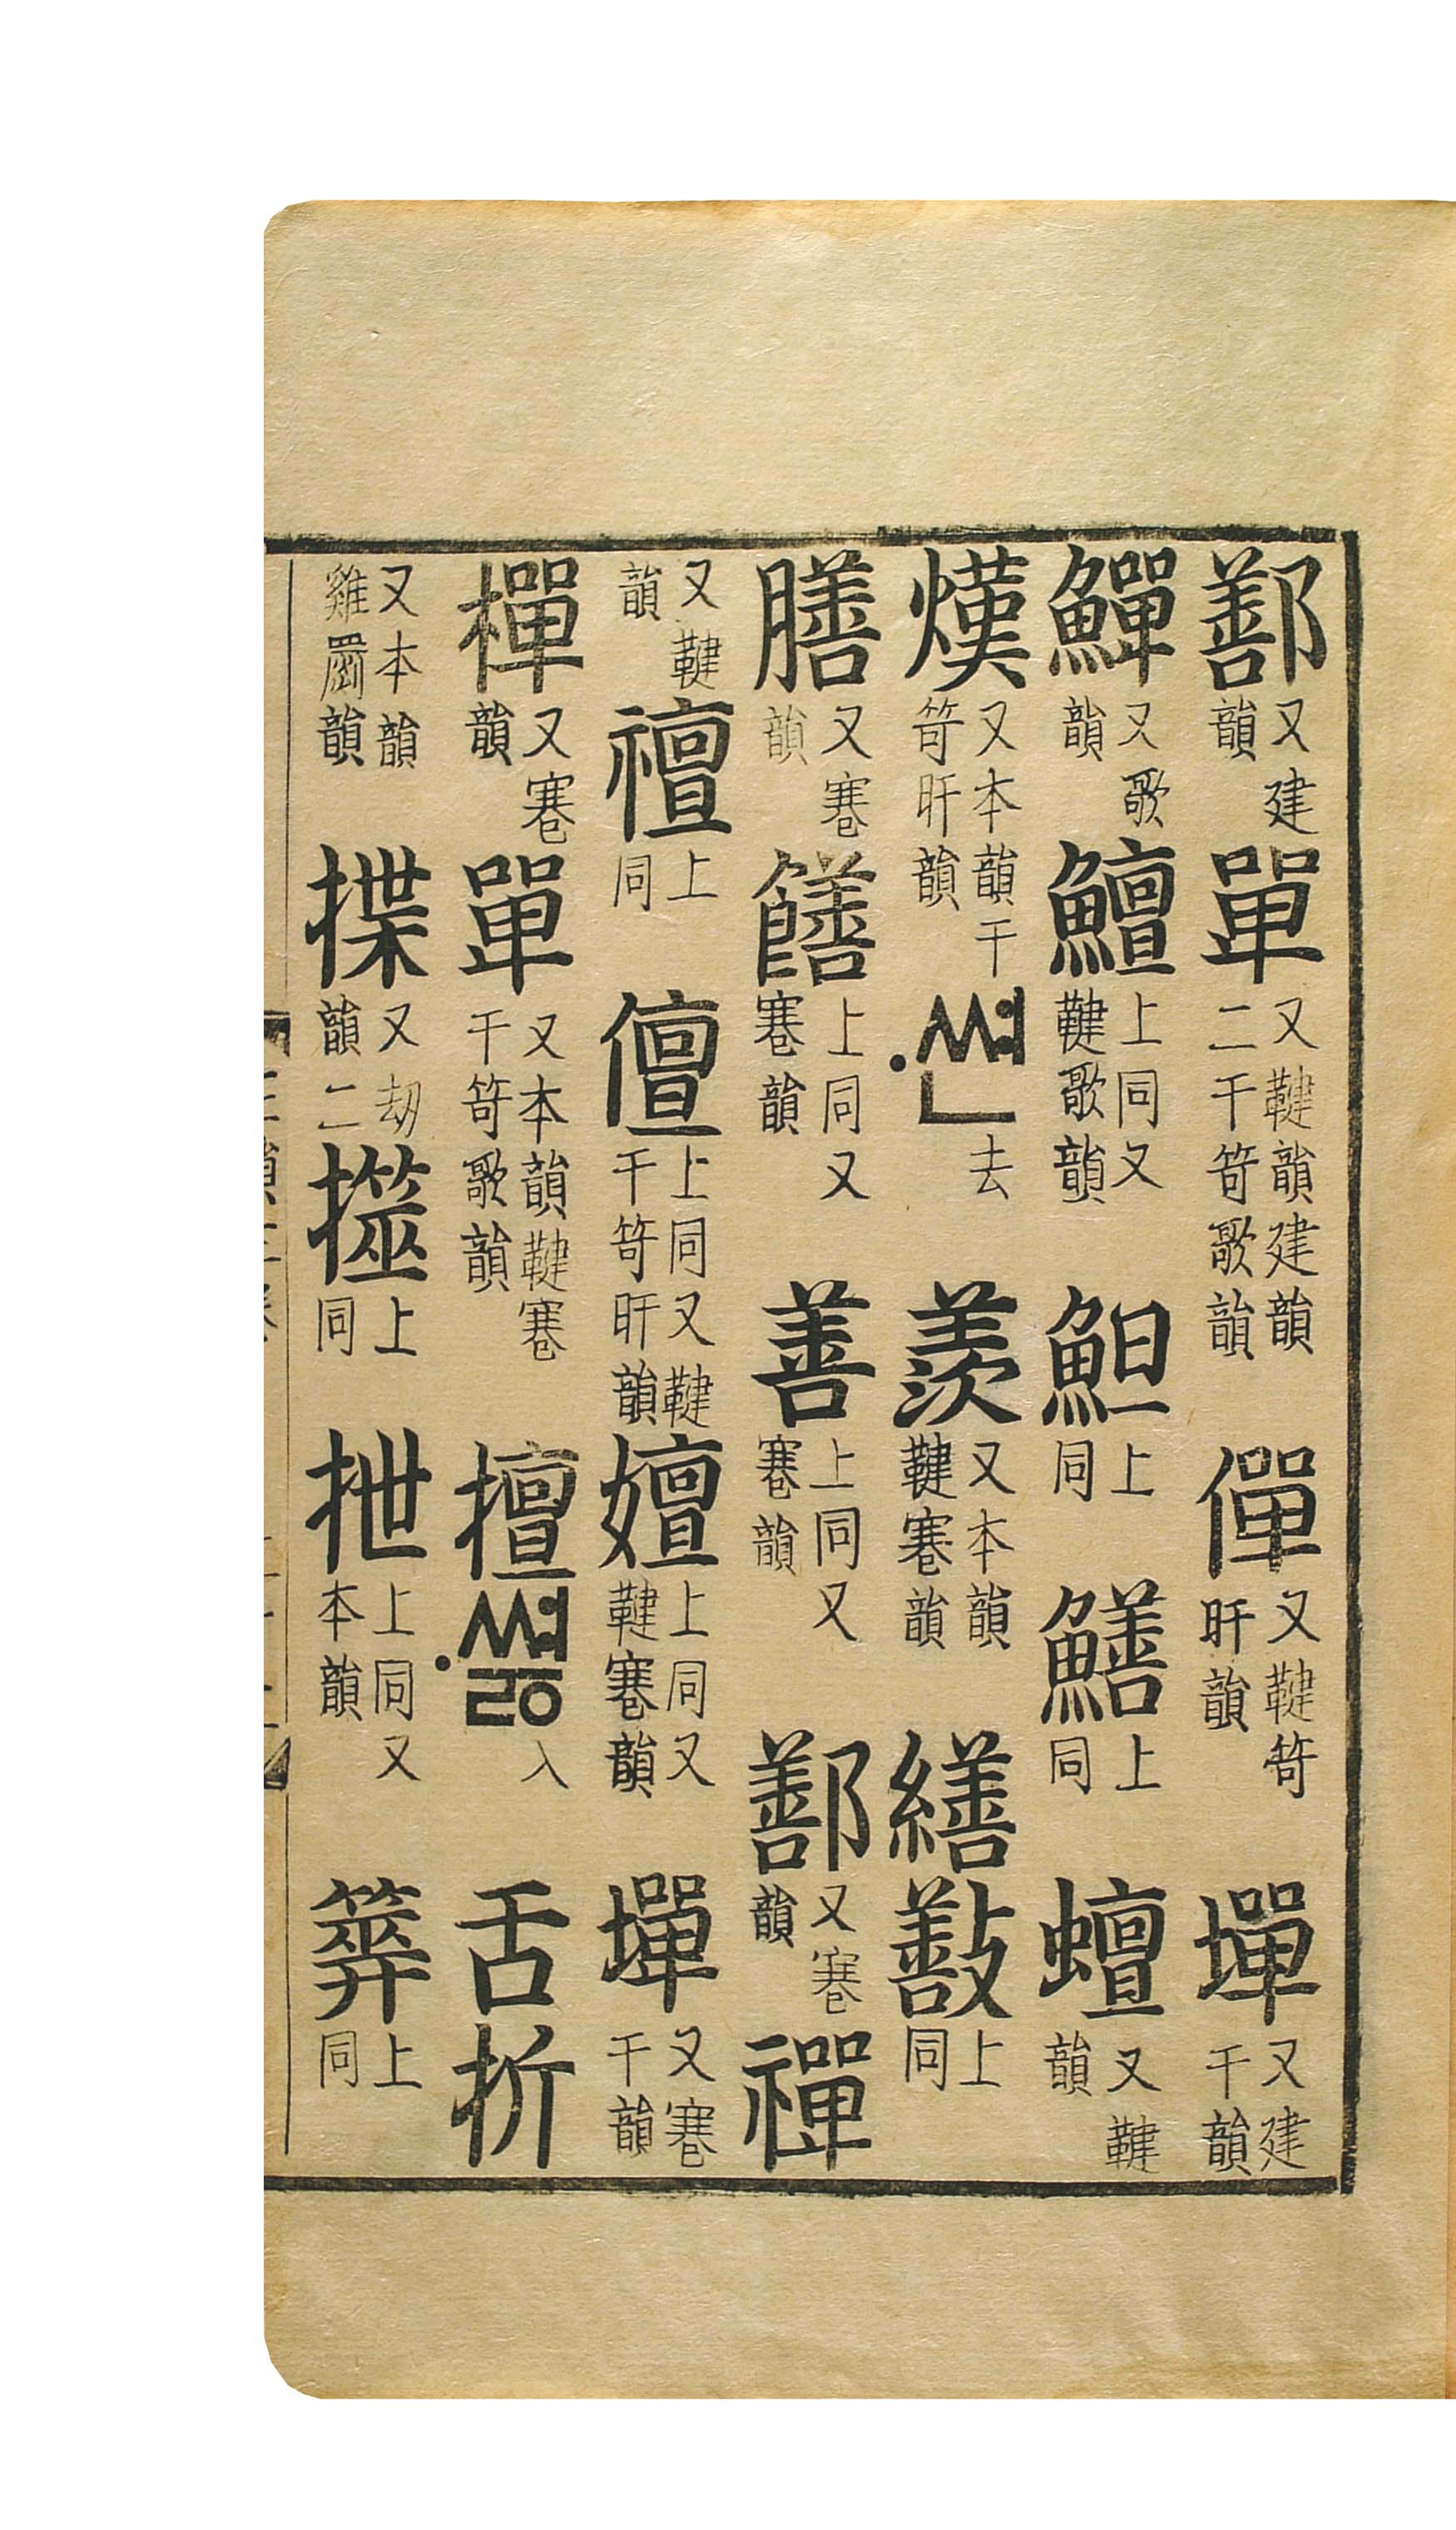 鄯又建韻單又鞬韻建韻二干笴歌韻僤又鞬笴旰韻墠又建干韻
鱓又歌韻鱣上同又鞬歌韻䱇上同鱔上同蟺又鞬韻
熯又本韻干笴旰韻·쎤去羨又本韻鞬寋韻繕敾上同
膳又寋韻饍上同又寋韻善上同又寋韻鄯又寋韻禪
又鞬韻䄠上同儃上同又鞬干笴旰韻嬗上同又鞬寋韻墠又寋干韻
樿又寋韻單又本韻鞬寋干笴歌韻擅·쎠ᇙ入舌折
又本韻雞罽韻揲又劫韻二㩸上同抴上同又本韻上同